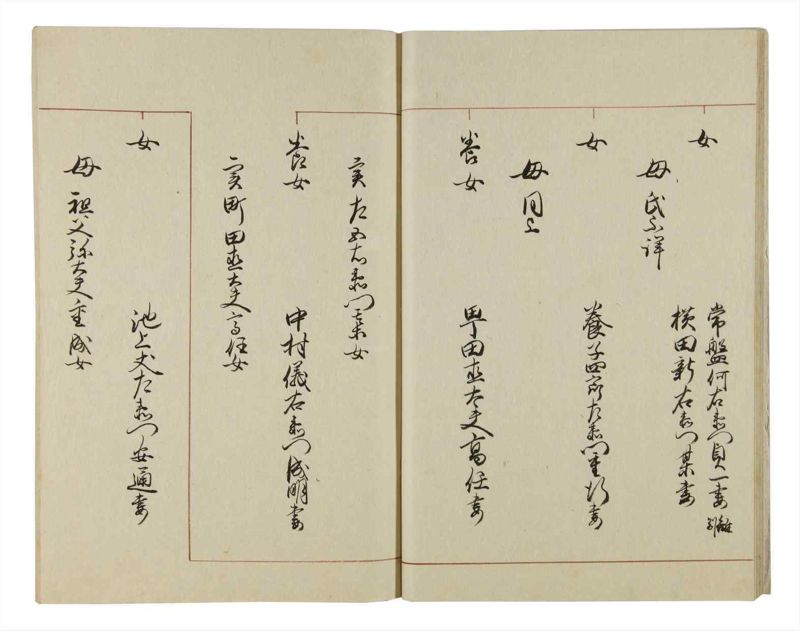 女
母 氏不詳
常盤何右衛門貞一妻 離別
横田新右衛門某妻
女
母 同上
養子四郎左衛門重行妻
養女
町田直太夫高任妻
実左五右衛門某女
養女
中村儀右衛門成明妻
実町田直太夫高任女
女
池上丈左衛門安通妻
母 祖父弥太夫重成女